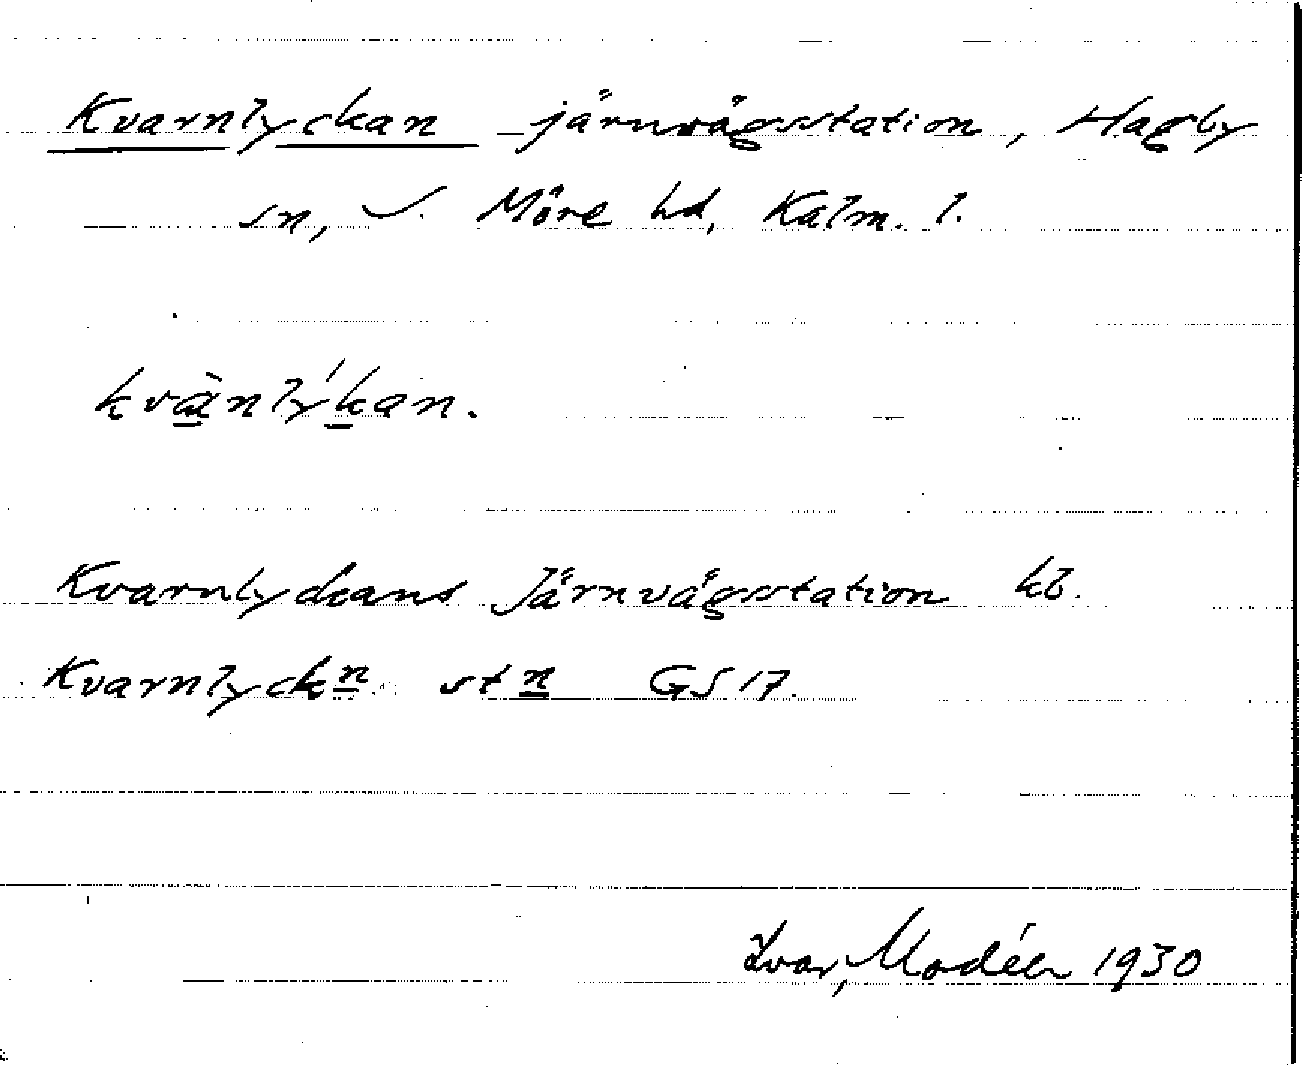 Kvarnlyckan järnvägsstation, Hagby
sn, S. Möre hd, Kalm. l.
kvànlýkan.
Kvarnlyckans Järnvägsstation kb.
Kvarnlyckn stn GS 17.
Ivar Modéer 1930